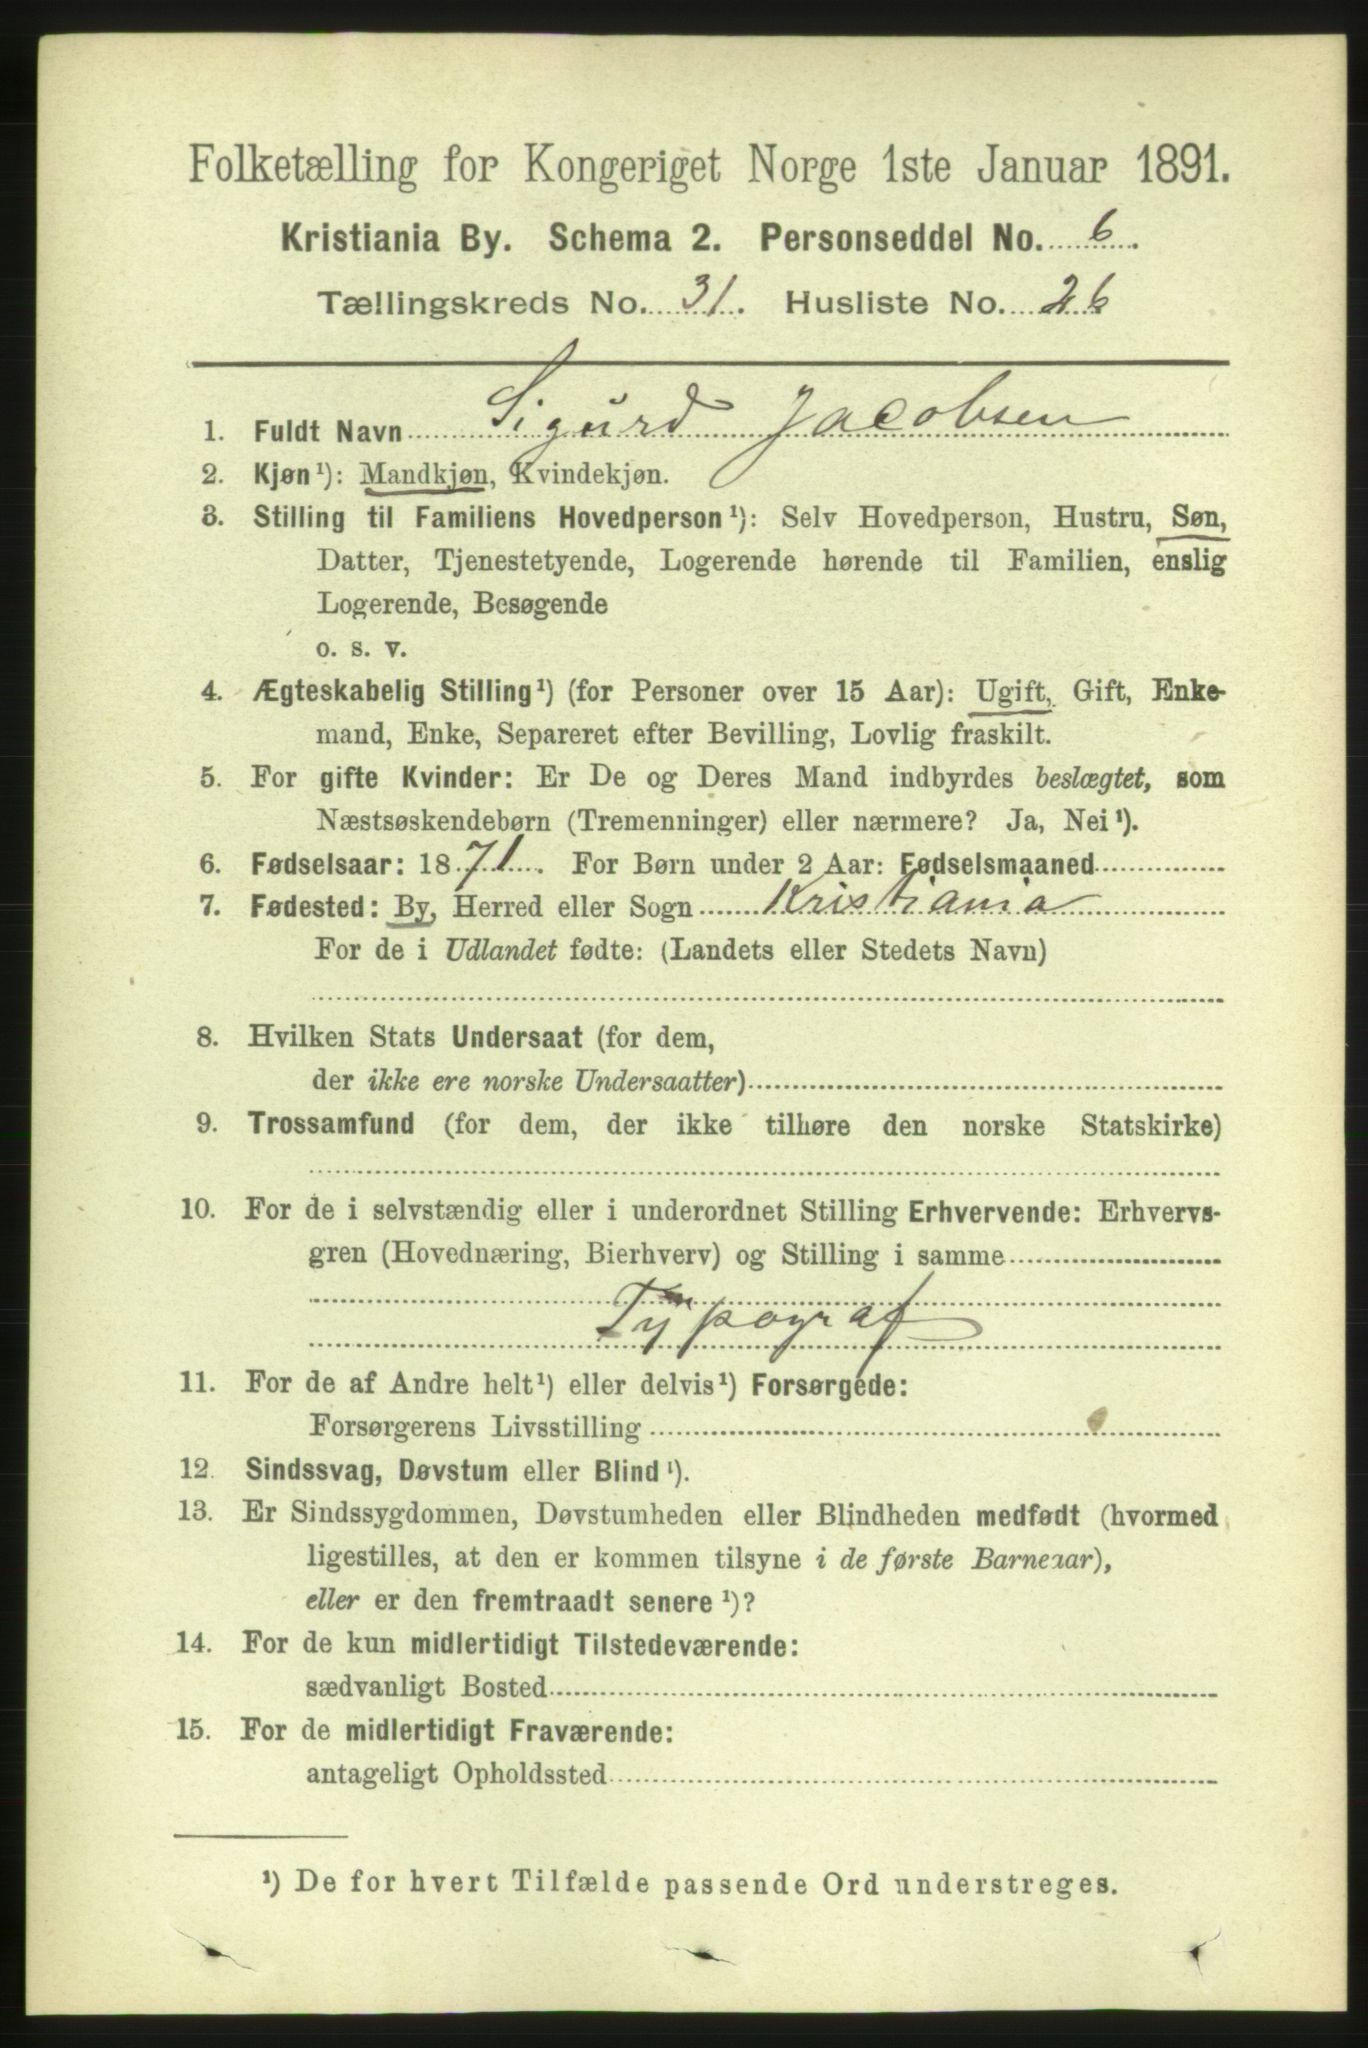 Folketælling for Kongeriget Norge 1ste Januar 1891.
Kristiania By. Schema 2. Personseddel No. 6.
Tællingskreds No. 31. Husliste No. 26
1. Fuldt Navn Sigurd Jacobsen
2. Kjøn¹): Mandkjøn, Kvindekjøn.
3. Stilling til Familiens Hovedperson¹): Selv Hovedperson, Hustru, Søn,
Datter, Tjenestetyende, Logerende hørende til Familien, enslig
Logerende, Besøgende
o. s. v.
4. Ægteskabelig Stilling¹) (for Personer over 15 Aar): Ugift, Gift, Enke-
mand, Enke, Separeret efter Bevilling, Lovlig fraskilt.
5. For gifte Kvinder: Er De og Deres Mand indbyrdes beslægtet, som
Næstsøskendebørn (Tremenninger) eller nærmere? Ja, Nei¹).
6. Fødselsaar: 1871. For Børn under 2 Aar: Fødselsmaaned
7. Fødested: By, Herred eller Sogn Kristiania
For de i Udlandet fødte: (Landets eller Stedets Navn)
8. Hvilken Stats Undersaat (for dem,
der ikke ere norske Undersaatter)
9. Trossamfund (for dem, der ikke tilhøre den norske Statskirke)
10. For de i selvstændig eller i underordnet Stilling Erhvervende: Erhvervs-
gren (Hovednæring, Bierhverv) og Stilling i samme
Typograf
11. For de af Andre helt¹) eller delvis¹) Forsørgede:
Forsørgerens Livsstilling
12. Sindssvag, Døvstum eller Blind¹).
13. Er Sindssygdommen, Døvstumheden eller Blindheden medfødt (hvormed
ligestilles, at den er kommen tilsyne i de første Barneaar),
eller er den fremtraadt senere¹)?
14. For de kun midlertidigt Tilstedeværende:
sædvanligt Bosted
15. For de midlertidigt Fraværende:
antageligt Opholdssted
¹) De for hvert Tilfælde passende Ord understreges.